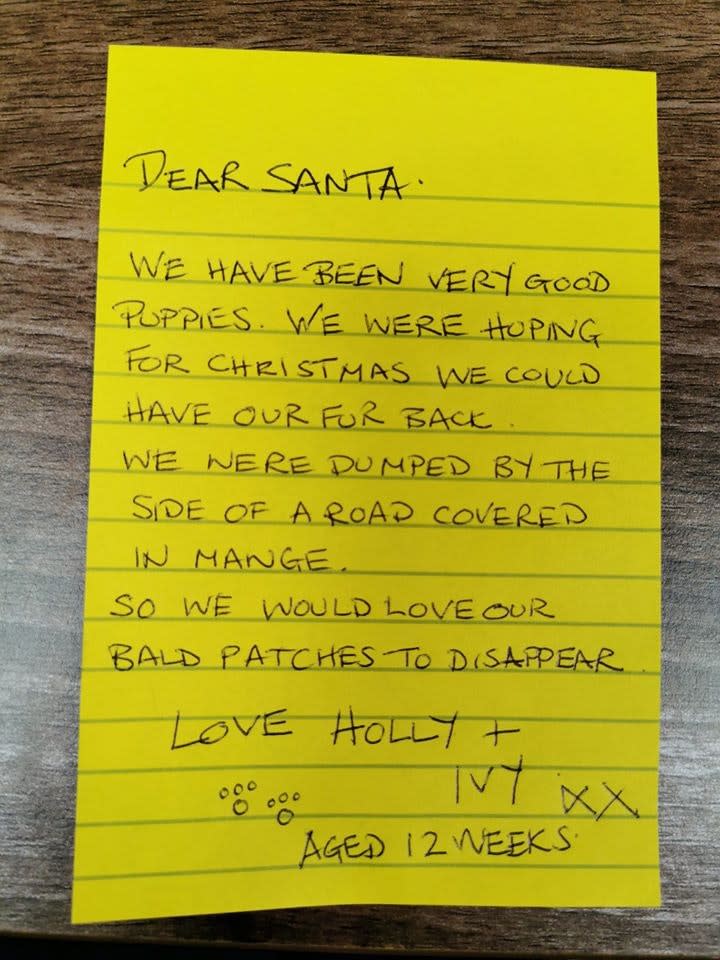 DEAR SANTA.
WE HAVE BEEN VERY GOOD
PUPPIES. WE WERE HOPING
FOR CHRISTMAS WE COULD
HAVE OUR FUR BACK.
WE WERE DUMPED BY THE
SIDE OF A ROAD COVERED
IN MANGE.
SO WE WOULD LOVE OUR
BALD PATCHES TO DISAPPEAR.
LOVE HOLLY +
IVY XX
AGED 12 WEEKS.